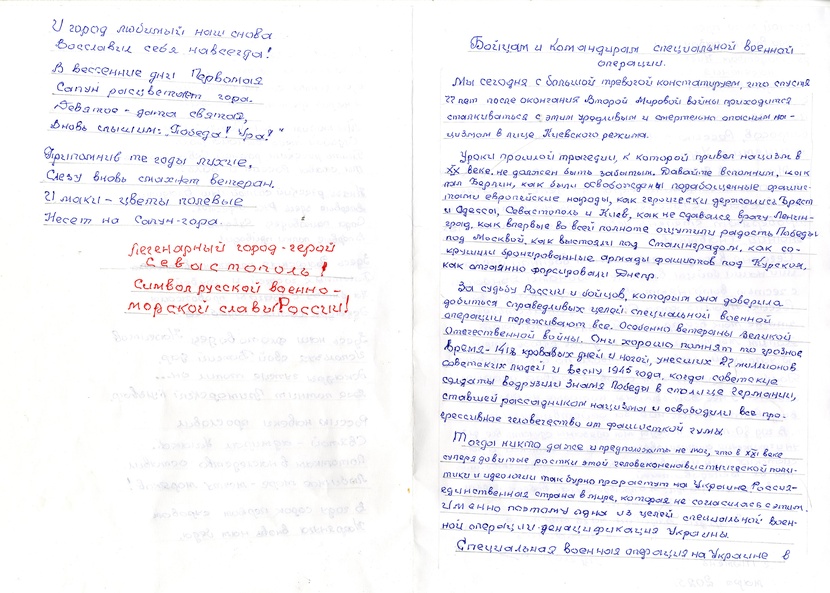 И город любимый наш снова
Восславил себя навсегда!
В весенние дни Первомая
Сапун расцветает гора.
Девятое - дата святая,
Вновь слышим: "Победа! Ура!"
Припомнив те годы лихие,
Слезу вновь смахнет ветеран.
И маки - цветы полевые
Несет на Сапун-гора.
Легендарный город-герой
Севастополь!
Символ русской военно-
морской славы России!
Бойцам и командирам специальной военной
операции.
Мы сегодня с большой тревогой констатируем, что спустя
77 лет после окончания Второй Мировой войны приходится
сталкиваться с этим уродливым и смертельно опасным на-
цизмом в лице Киевского режима.
Уроки прошлой трагедии, к которой привел нацизм в
XX веке, не должен быть забытым. Давайте вспомним, как
пал Берлин, как были освобождены порабощенные фашис-
тами европейские народы, как героически держались Брест
и Одесса, Севастополь и Киев, как не сдавался врагу Ленин-
град, как впервые во всей полноте ощутили радость Победы
под Москвой, как выстояли под Сталинградом, как со-
крушили бронированные армады фашистов под Курском,
как отчаянно форсировали Днепр.
За судьбу России и бойцов, которым она доверила
добиться справедливых целей специальной военной
операции переживают все. Особенно ветераны Великой
Отечественной войны. Они хорошо помнят то грозное
время - 1418 кровавых дней и ночей, унесших 27 миллионов
советских людей и весну 1945 года, когда советские
солдаты водрузили Знамя Победы в столице Германии,
ставшей рассадником нацизма и освободили все про-
грессивное человечество от фашистской чумы.
Тогда никто даже и предположить не мог, что в XXI веке
суперядовитые ростки этой человеконенавистнической поли-
тики и идеологии так бурно прорастут на Украине. Россия-
единственная страна в мире, которая не согласилась с этим.
Именно поэтому одна из целей специальной воен-
ной операции - денацификация Украины.
Специальная военная операция на Украине в